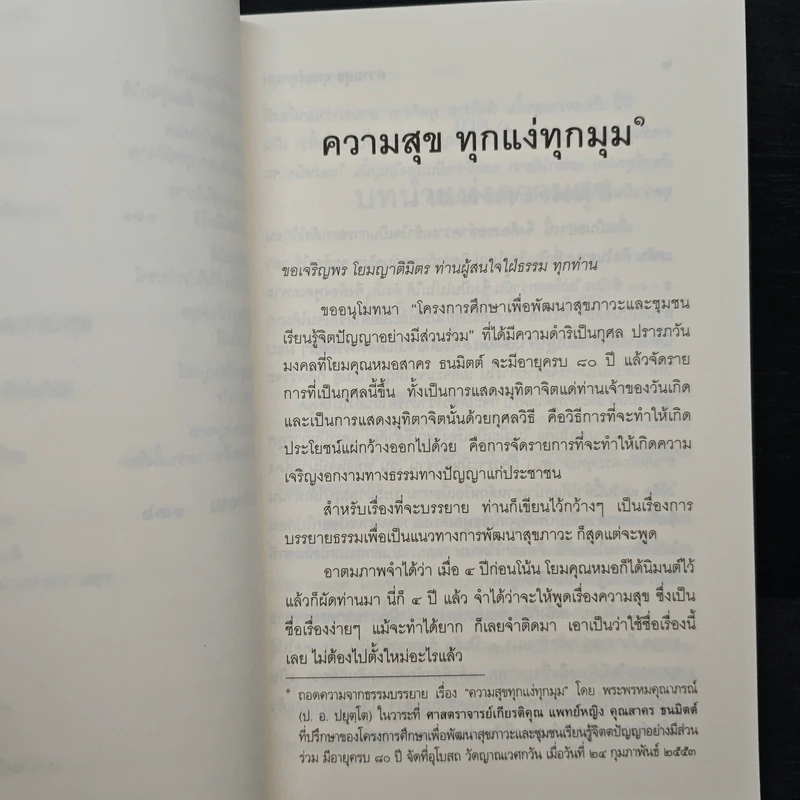 ความสุข ทุกแง่ทุกมุม๑
ขอเจริญพร โยมญาติมิตร ท่านผู้สนใจใฝ่ธรรม ทุกท่าน
ขออนุโมทนา "โครงการศึกษาเพื่อพัฒนาสุขภาวะและชุมชน
เรียนรู้จิตปัญญาอย่างมีส่วนร่วม" ที่ได้มีความดำริเป็นกุศล ปรารภวัน
มงคลที่โยมคุณหมอสาคร ธนมิตต์ จะมีอายุครบ ๘๐ ปี แล้วจัดราย
การที่เป็นกุศลนี้ขึ้น ทั้งเป็นการแสดงมุทิตาจิตแด่ท่านเจ้าของวันเกิด
และเป็นการแสดงมุทิตาจิตนั้นด้วยกุศลวิธี คือวิธีการที่จะทำให้เกิด
ประโยชน์แผ่กว้างออกไปด้วย คือการจัดรายการที่จะทำให้เกิดความ
เจริญงอกงามทางธรรมทางปัญญาแก่ประชาชน
สำหรับเรื่องที่จะบรรยาย ท่านก็เขียนไว้กว้างๆ เป็นเรื่องการ
บรรยายธรรมเพื่อเป็นแนวทางการพัฒนาสุขภาวะ ก็สุดแต่จะพูด
อาตมภาพจำได้ว่า เมื่อ ๔ ปีก่อนโน้น โยมคุณหมอก็ได้นิมนต์ไว้
แล้วก็ผัดท่านมา นี่ก็ ๔ ปี แล้ว จำได้ว่าจะให้พูดเรื่องความสุข ซึ่งเป็น
ชื่อเรื่องง่ายๆ แม้จะทำได้ยาก ก็เลยจำติดมา เอาเป็นว่าใช้ชื่อเรื่องนี้
เลย ไม่ต้องไปตั้งใหม่อะไรแล้ว
๑ ถอดความจากธรรมบรรยาย เรื่อง "ความสุขทุกแง่ทุกมุม" โดย พระพรหมคุณาภรณ์
(ป. อ. ปยุตฺโต) ในวาระที่ ศาสตราจารย์เกียรติคุณ แพทย์หญิง คุณสาคร ธนมิตต์
ที่ปรึกษาของโครงการศึกษาเพื่อพัฒนาสุขภาวะและชุมชนเรียนรู้จิตตปัญญาอย่างมีส่วน
ร่วม มีอายุครบ ๘๐ ปี จัดที่อุโบสถ วัดญาณเวศกวัน เมื่อวันที่ ๒๔ กุมภาพันธ์ ๒๕๕๓